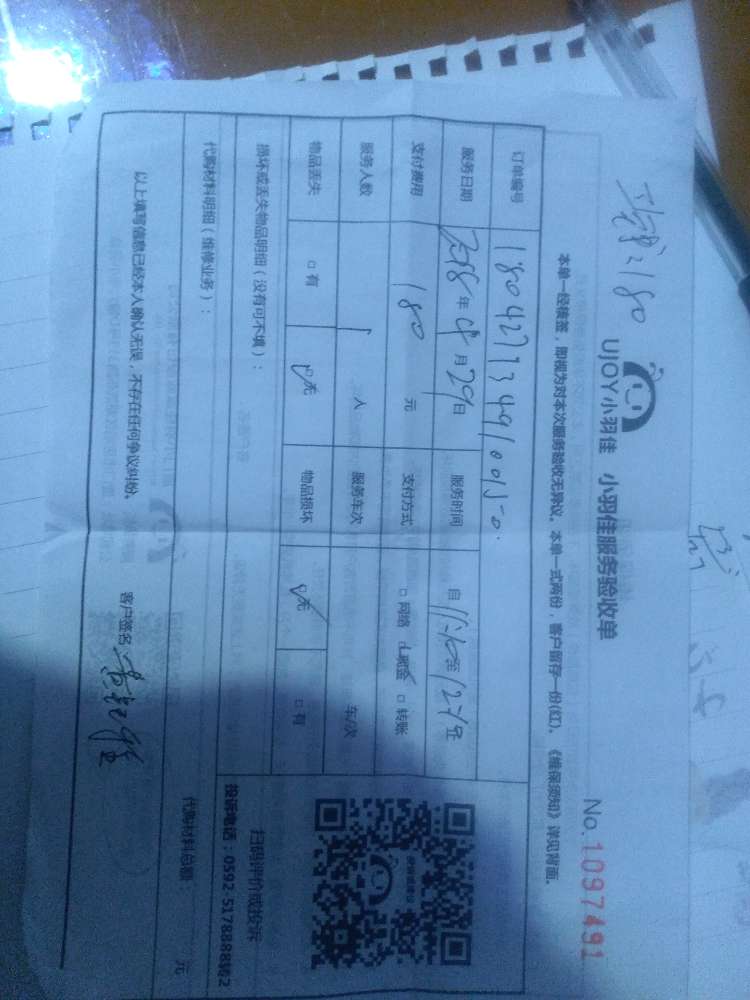 UJOY小羽佳 小羽佳服务验收单
No.1097491
本单一经核签，即视为对本次服务验收无异议。本单一式两份，客户留存一份(红)。《维保须知》详见背面。
订单编号
服务日期 2018年4月29日 服务时间 自 至
支付费用 180 元 支付方式 □网络 □现金 □转账
服务人数 1 人 服务车次 车/次
物品丢失 □有 □无 物品损坏 □无 □有
损坏或丢失物品明细（没有可不填）：
扫码评价或投诉
投诉电话：0592-5178888转2
代购材料明细（维修业务）：
代购材料总额 元
以上填写信息已经本人确认无误，不存在任何争议纠纷。 客户签名